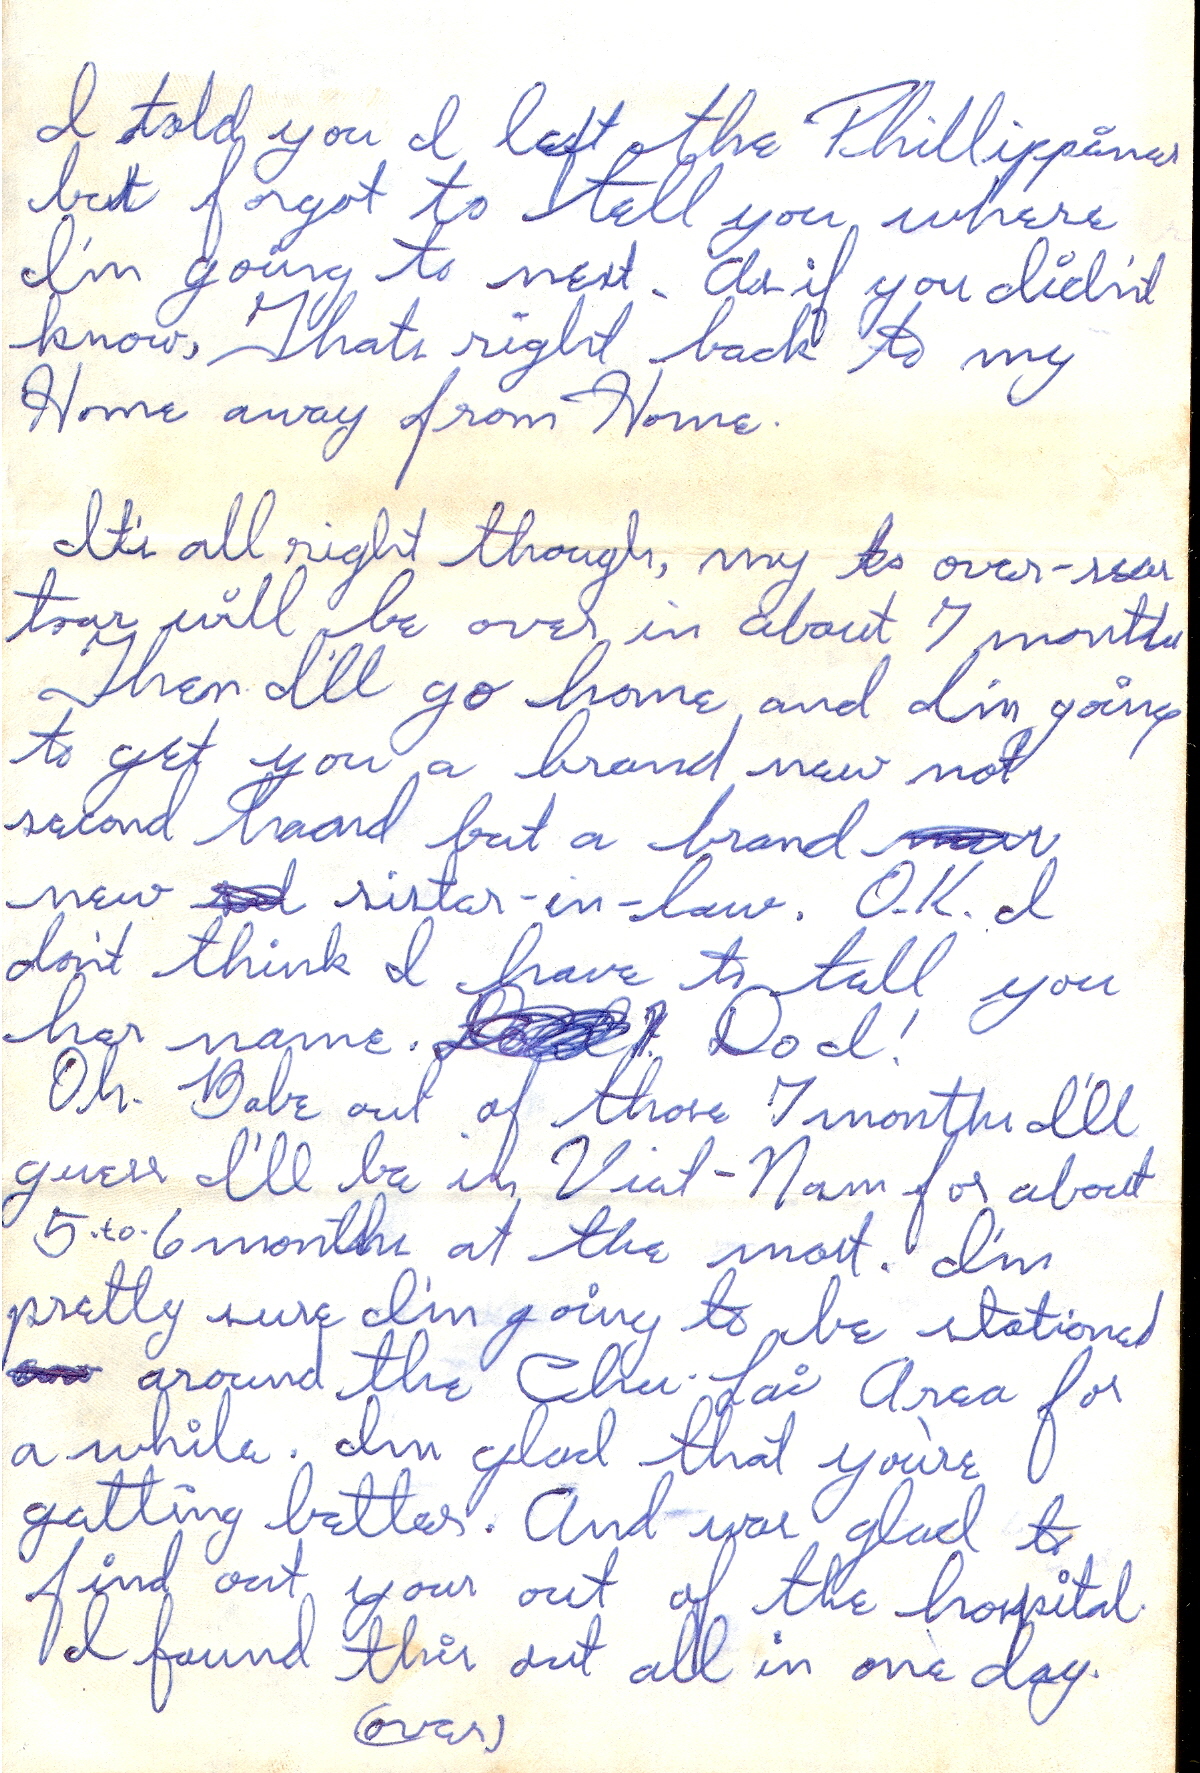 I told you I left the Phillippines
but forgot to tell you where
I'm going to next. As if you didn't
know, Thats right back to my
Home away from Home.
It's all right though, my to over-seas
tour will be over in about 7 months
Then I'll go home and I'm going
to get you a brand new not
second haand but a brand
new sister-in-law. O.K. I
don't think I have to tell you
her name. Do I!
Oh. Babe out of those 7 months I'll
guess I'll be in Viet-Nam for about
5-to-6 months at the most. I'm
pretty sure I'm going to be stationed
around the Chu-Lai Area for
a while. I'm glad that you're
getting better. And was glad to
find out your out of the hospital.
I found this out all in one day.
(over)